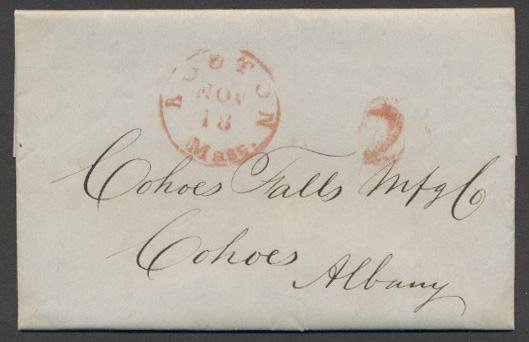 BOSTON
NOV
18
Mass.
Cohoes Falls Mfg Co
Cohoes
Albany